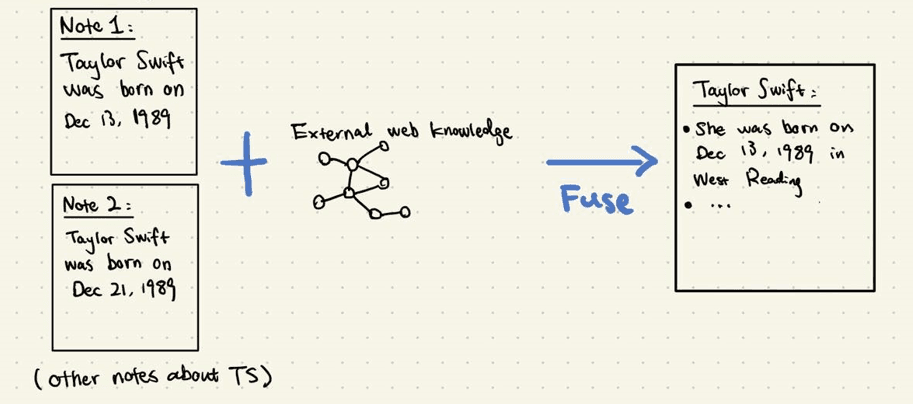 Note 1:
Taylor Swift
was born on
Dec 13, 1989
Note 2:
Taylor Swift
was born on
Dec 21, 1989
(other notes about TS)
External web knowledge
Fuse
Taylor Swift:
• She was born on
Dec 13, 1989 in
West Reading
• ...